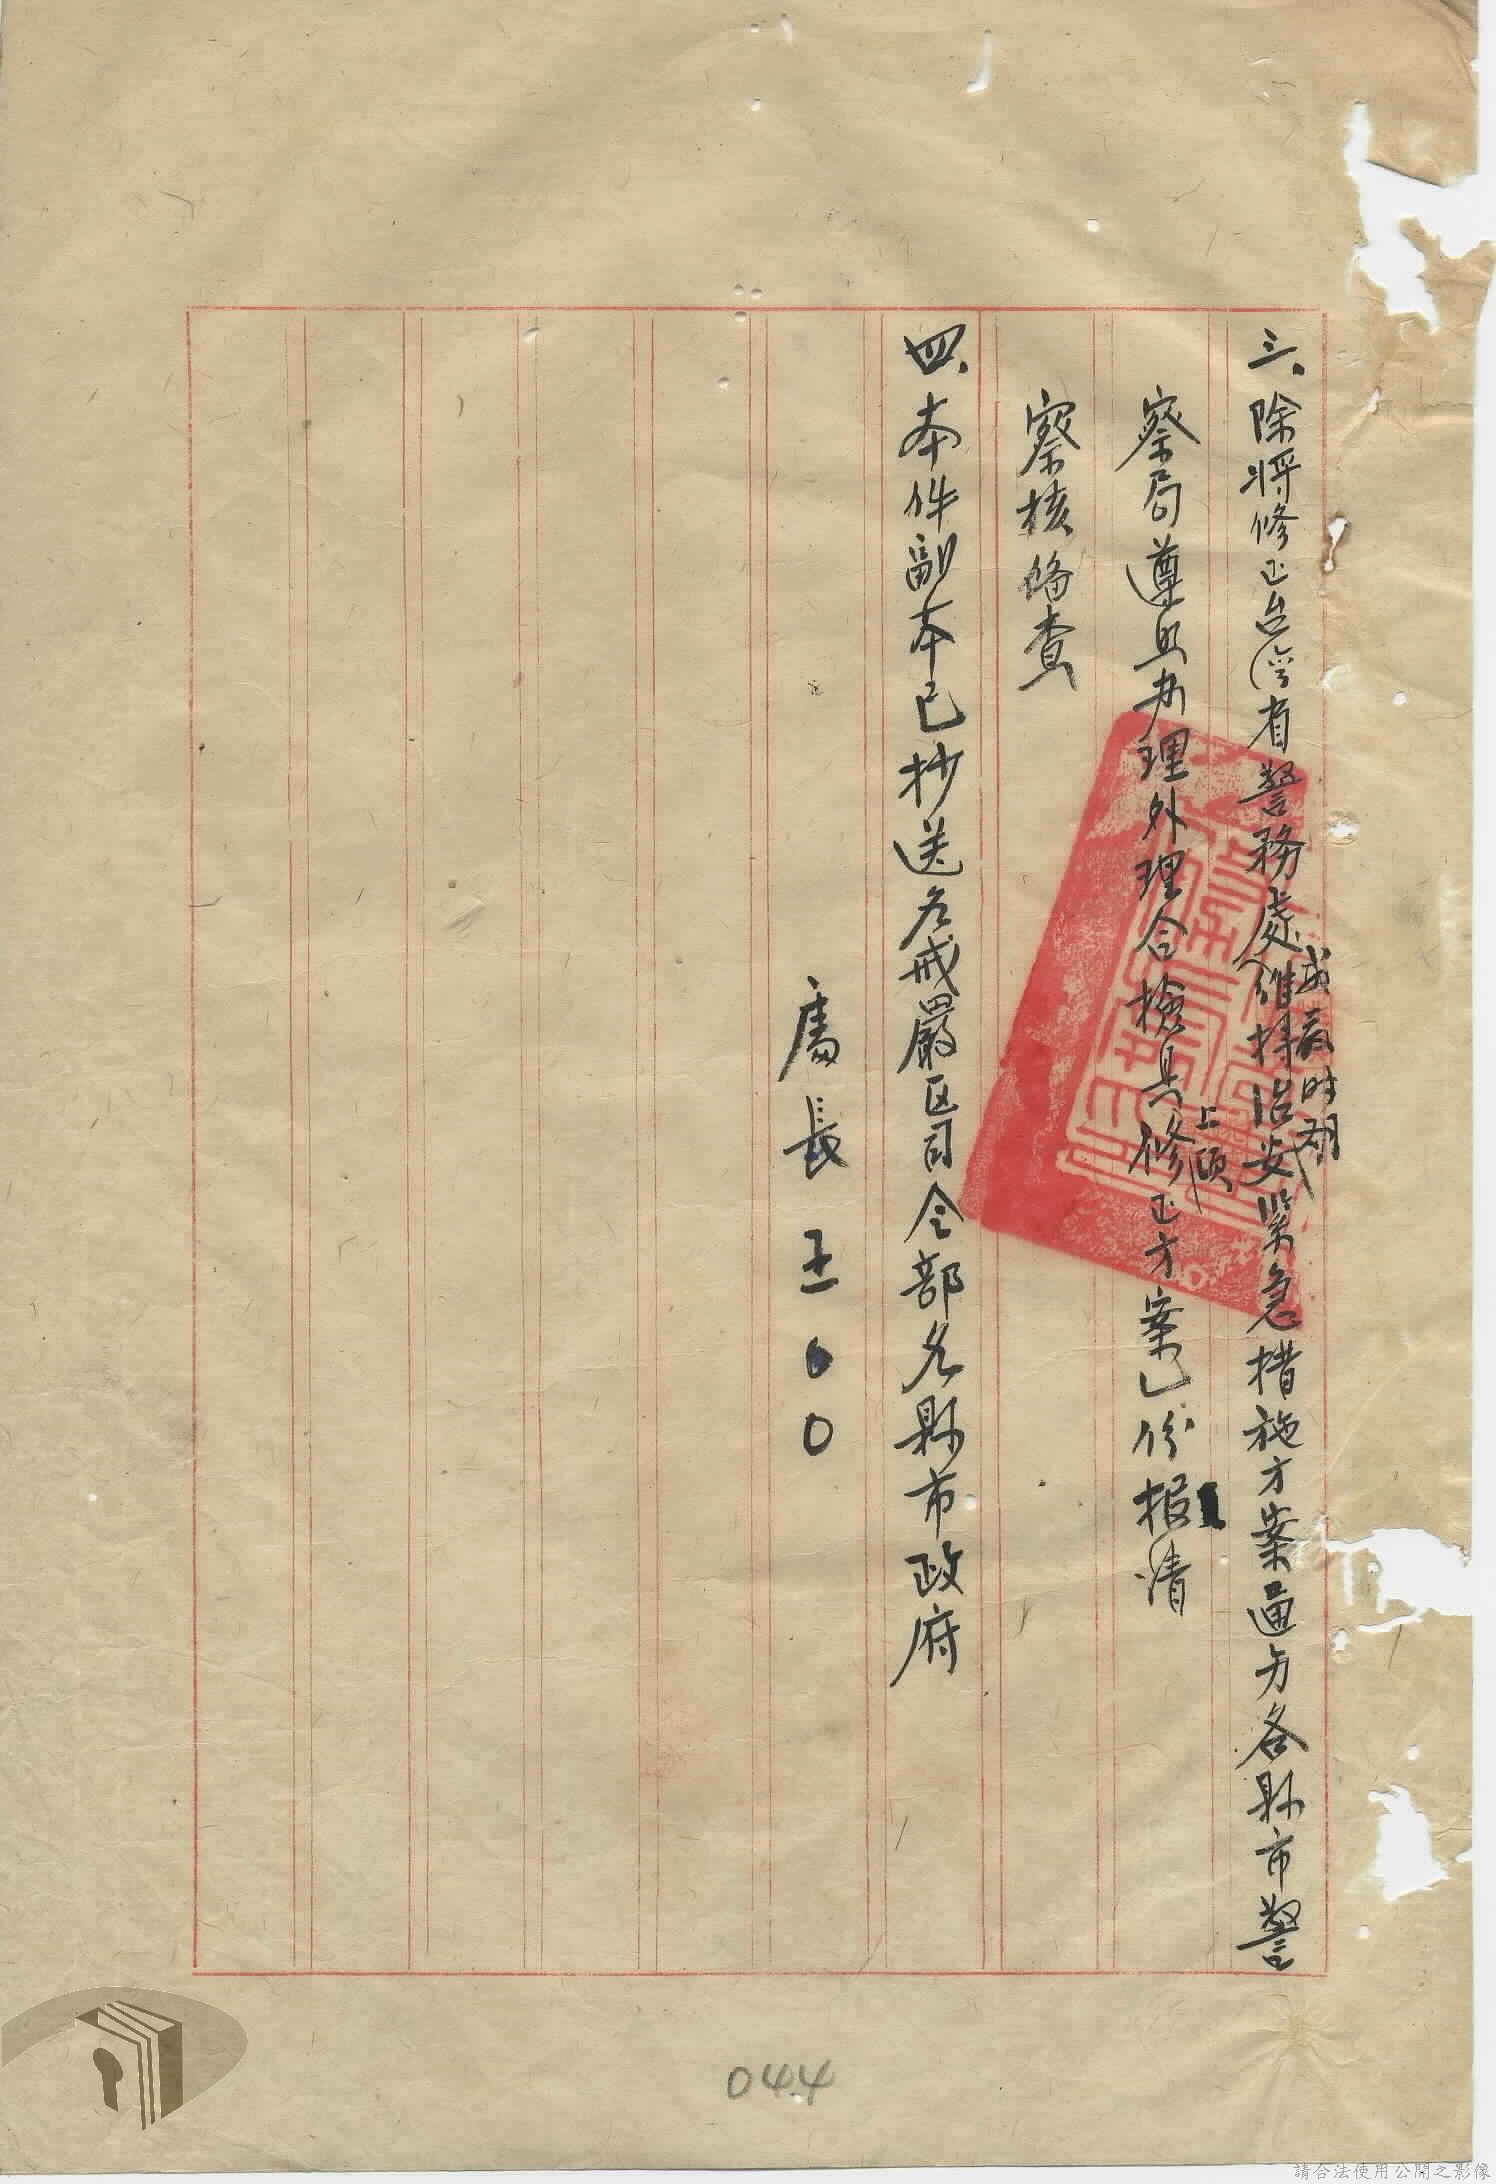 三、除將修正台湾省警務處戒嚴时期維持治安緊急措施方案通令各縣市警
察局遵照办理外理合檢具上項修正方案乙份报请
察核俻查
四、本件副本已抄送各戒嚴区司令部各縣市政府
處長王〇〇
044
請合法使用公開之影像